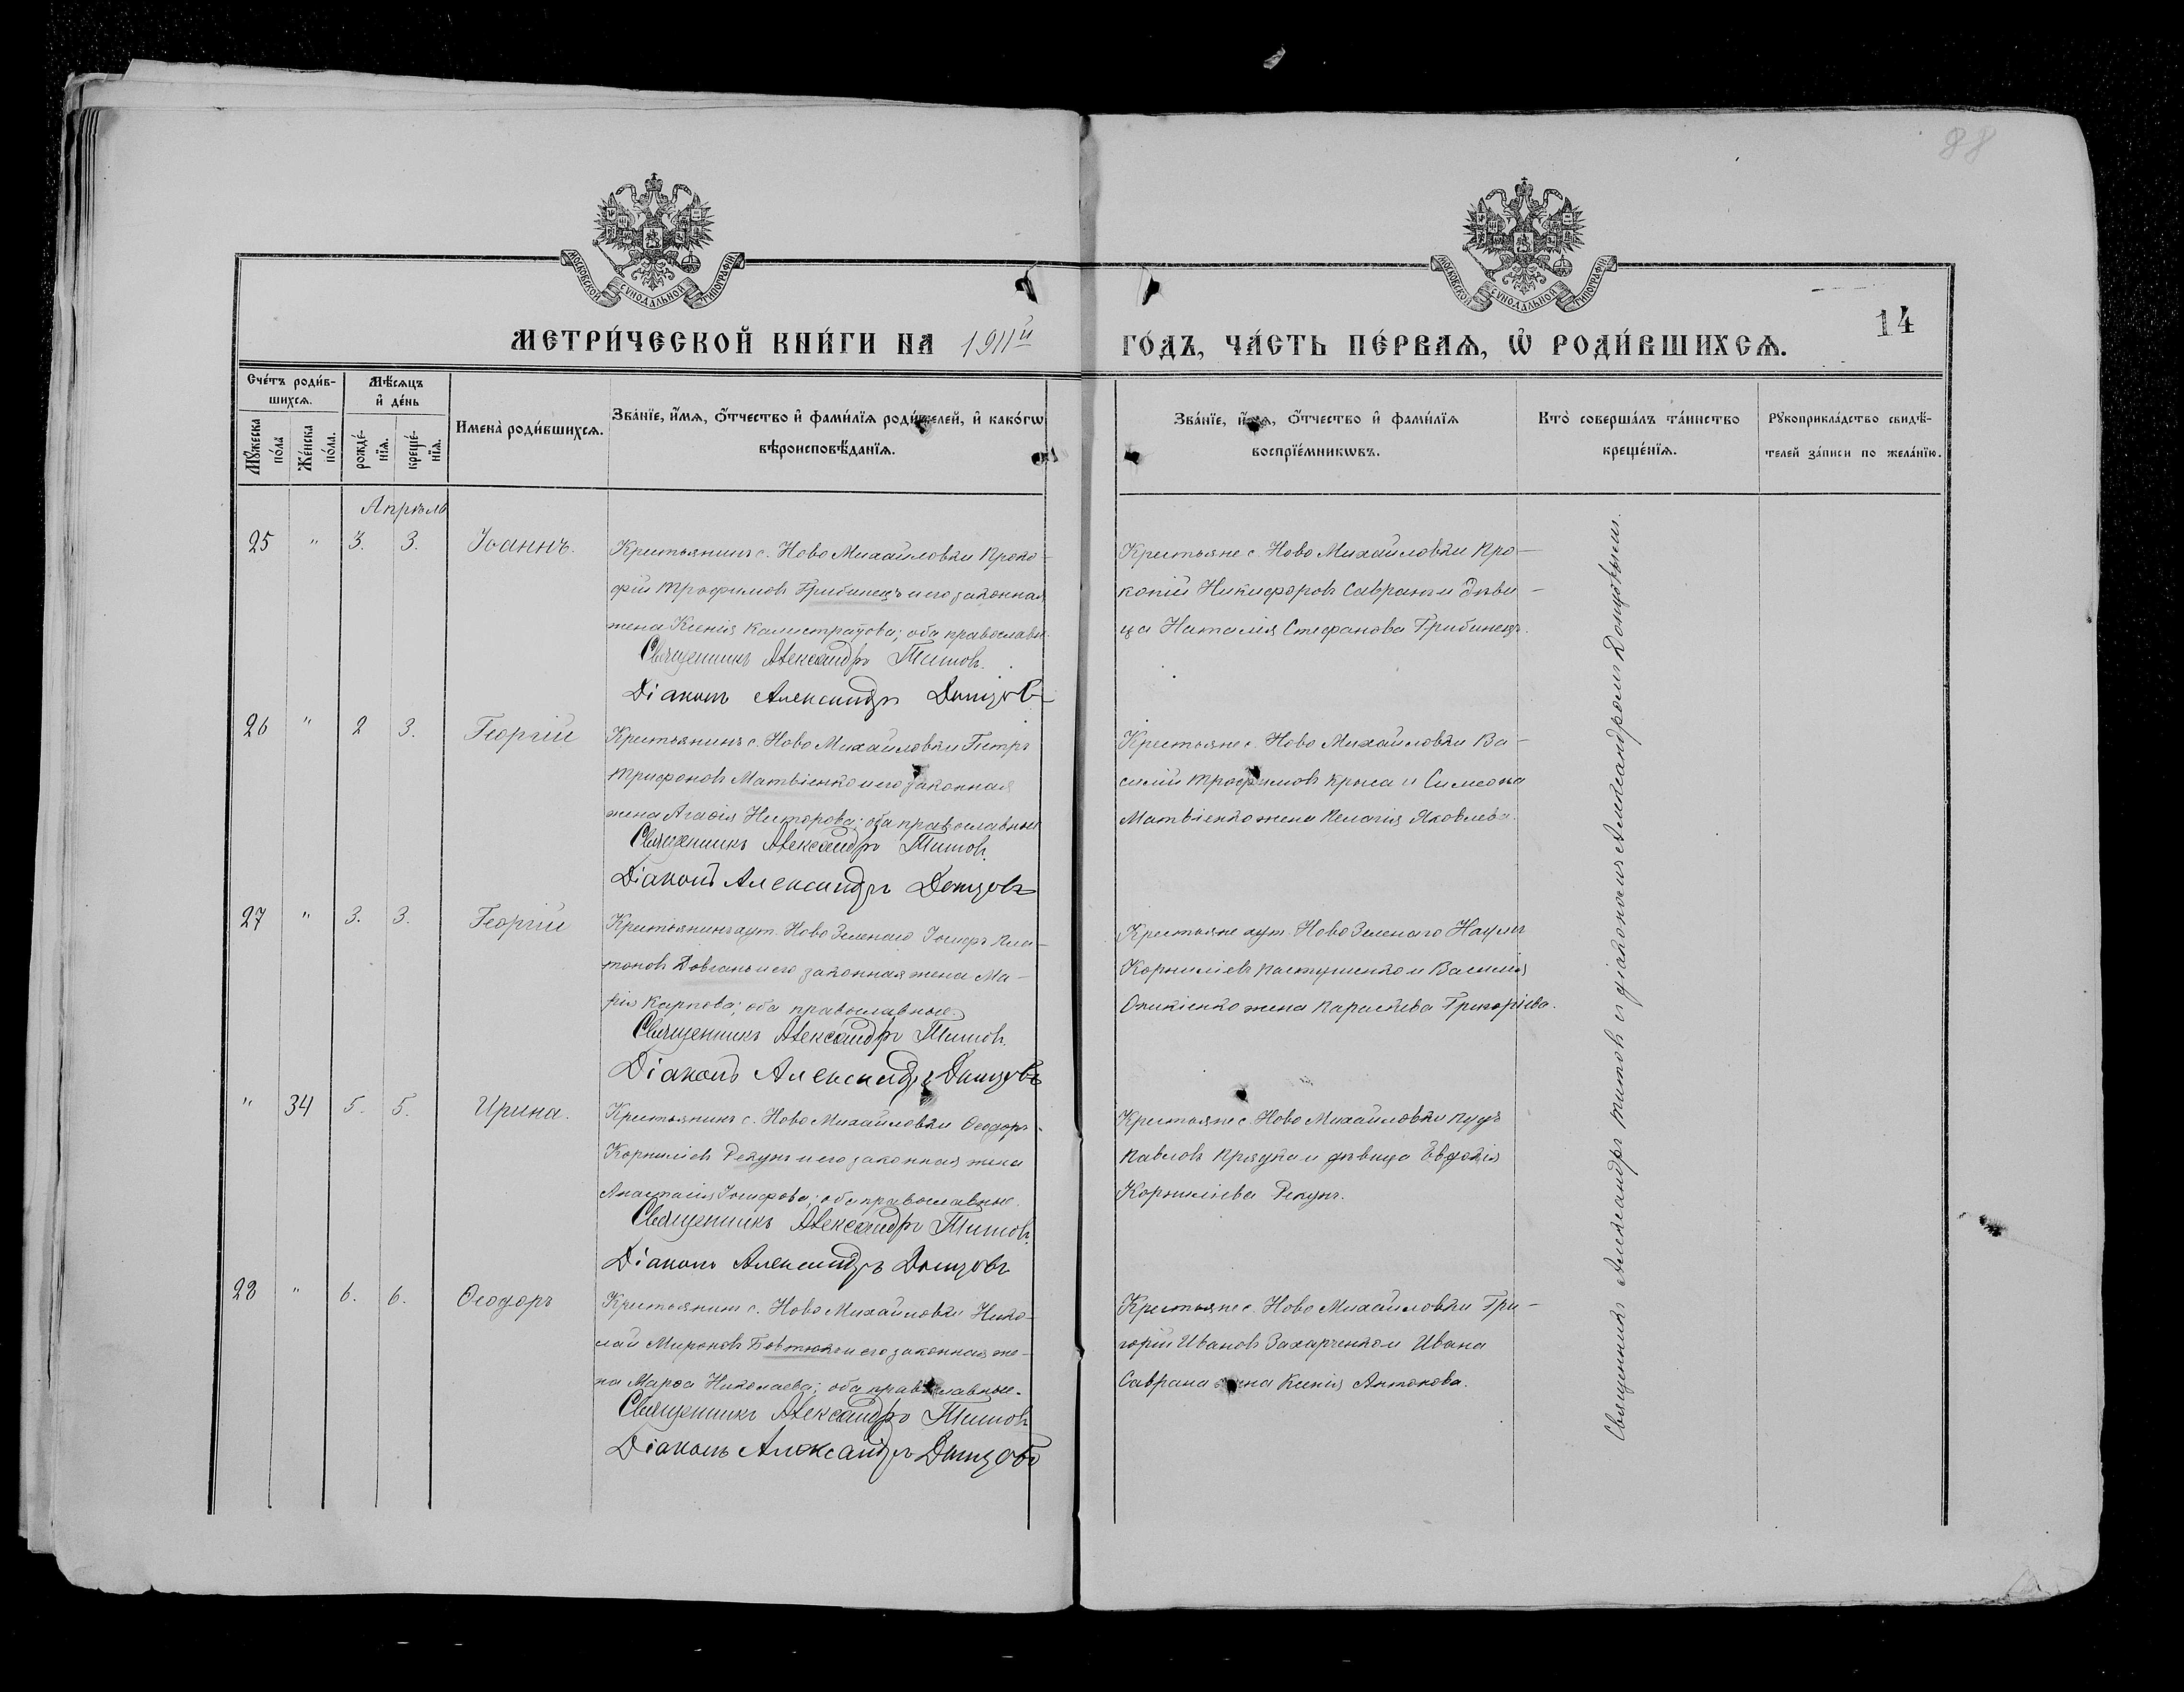 88
МОСКОВСКОЙ СУНОДАЛЬНОЙ ТИПОГРАФІИ
МОСКОВСКОЙ СУНОДАЛЬНОЙ ТИПОГРАФІИ
14
МЕТРИ́ЧЕСКОЙ КНИ́ГИ НА 1911й ГО́ДЪ, ЧА́СТЬ ПЕ́РВАѦ, Ѡ҆ РОДИ́ВШИХСѦ.
Сче́тъ роди́в-
шихсѧ.
Мꙋ́жеска по́ла̀
Же́нска по́ла.
Мѣ́сѧцъ
и҆ де́нь
рожде́-нїѧ.
креще́-нїѧ.
Имена̀ роди́вшихсѧ.
Зва́нїе, и҆́мѧ, ѻ҆́тчество и҆ фами́лїѧ роди́телей, и҆ како́гѡ
вѣроисповѣ́данїѧ.
Зва́нїе, и҆́мѧ, ѻ҆́тчество и҆ фами́лїѧ
воспрїе́мникѡвъ.
Кто̀ соверша́лъ та́инство
креще́нїѧ.
Рꙋкоприкла́дство свидѣ́-
телей за́писи по жела́нїю.
Апрѣль
25 " 3. 3. Іоаннъ.
Крестьянинъ с. Ново Михайловки Проко-
фій Трофимовъ Грибинецъ и его законная
жена Ксенія Калистратова; оба православн.
Священникъ Александръ Титовъ.
Діаконъ Александръ Донцовъ
Крестьяне с. Ново Михайловки Про-
копій Никифоровъ Савранъ и дѣви-
ца Наталія Стефанова Грибинецъ.
26 " 2 3. Георгій
Крестьянинъ с. Ново Михайловки Петръ
Трифоновъ Матвіенко и его законная
жена Агафія Несторова; оба православные
Священникъ Александръ Титовъ.
Діаконъ Александръ Донцовъ
Крестьяне с. Ново Михайловки Ва-
силій Трофимовъ Крыса и Симеона
Матвіенко жена Пелагія Яковлева.
27 " 3. 3. Георгій
Крестьянинъ хут. Ново Зеленаго Іосифъ Пла-
тоновъ Довгань и его законная жена Ма-
рія Карпова; оба православные.
Священникъ Александръ Титовъ.
Діаконъ Александръ Донцовъ
Крестьяне хут. Ново Зеленаго Наумъ
Корниліевъ Пастушенко и Василія
Оникіенко жена Параскева Григоріева.
" 34 5. 5. Ирина.
Крестьянинъ с. Ново Михайловки Ѳеодоръ
Корниліевъ Рекунъ и его законная жена
Анастасія Іосифова; оба православные.
Священникъ Александръ Титовъ.
Діаконъ Александръ Донцовъ
Крестьяне с. Ново Михайловки Пудъ
Павловъ Прядка и дѣвица Евдокія
Корниліева Рекунъ.
28 " 6. 6. Ѳеодоръ
Крестьянинъ с. Ново Михайловки Нико-
лай Мироновъ Бовтюкъ и его законная же-
на Марѳа Николаева; оба православные.
Священникъ Александръ Титовъ
Діаконъ Александръ Донцовъ
Крестьяне с. Ново Михайловки Гри-
горій Ивановъ Захарченко и Ивана
Саврана жена Ксенія Антонова.
Священникъ Александръ Титовъ и діакономъ Александромъ Донцовымъ.